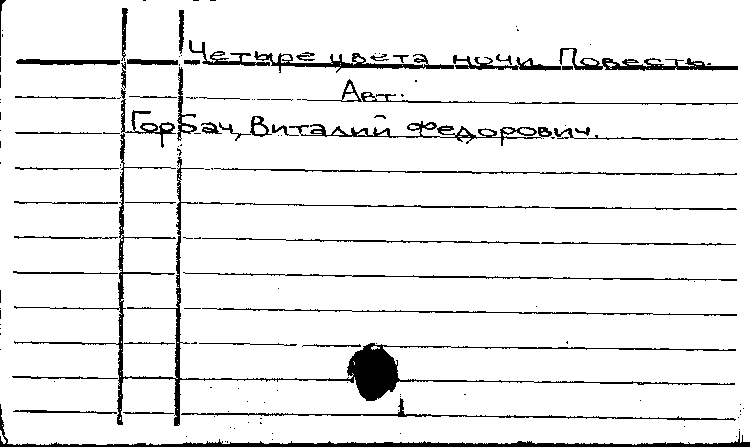 Четыре цвета ночи. Повесть.
Авт.:
Горбач, Виталий Федорович.